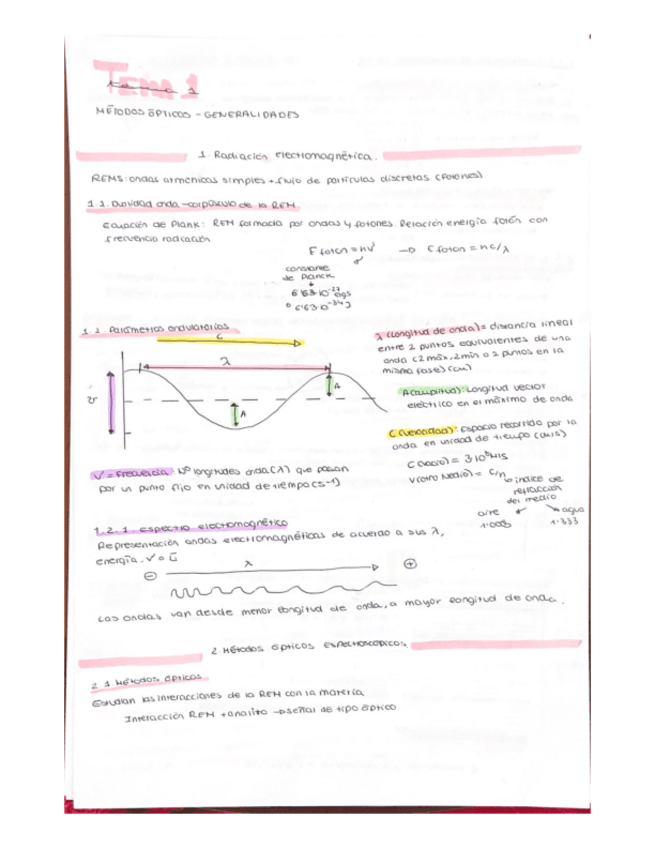 Tema 1
MÉTODOS ÓPTICOS - GENERALIDADES
1. Radiación electromagnética.
REMS: ondas armónicas simples + flujo de partículas discretas (Fotones)
1.1. Dualidad onda-corpúsculo de la REM
Ecuación de Plank: REM formada por ondas y fotones. Relación energía fotón con
frecuencia radiación
E foton = hν → E foton = hc/λ
constante
de Planck
6'63·10⁻²⁷ ergs
o 6'63·10⁻³⁴ J
1.2. Parámetros ondulatorios
c
λ
A
A
λ (Longitud de onda) = distancia lineal
entre 2 puntos equivalentes de una
onda (2 máx, 2 mín o 2 puntos en la
misma fase) (cm)
A (amplitud): Longitud vector
eléctrico en el máximo de onda
C (velocidad): Espacio recorrido por la
onda en unidad de tiempo (cm/s)
C (vacío) = 3·10⁸ M/S
V (otro Medio) = C/n
índice de
refracción
del medio
aire
agua
1.333
V = Frecuencia: Nº longitudes onda (λ) que pasan
por un punto fijo en unidad de tiempo (s⁻¹)
1.2.1 espectro electromagnético
Representación ondas electromagnéticas de acuerdo a sus λ,
energía, V o Ü
λ
-
+
Las ondas van desde menor longitud de onda, a mayor longitud de onda.
2. Métodos ópticos Espectroscópicos.
2.1. Métodos ópticos
Estudian las interacciones de la REM con la materia
Interacción REM + analito → señal de tipo óptico